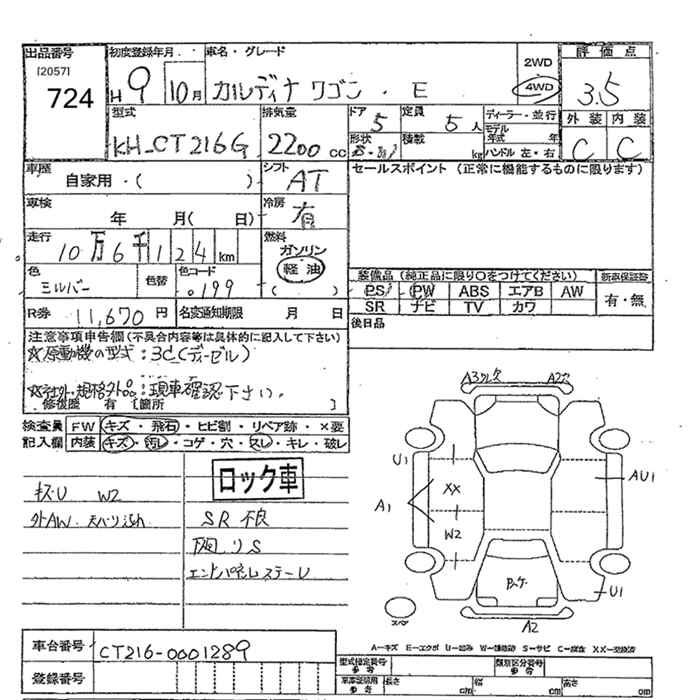 出品番号 初度登録年月 車名・グレード 2WD 評価点
[2057]
724 H 9 10月 カルディナ ワゴン ・ E 4WD 3.5
型式 排気量 ドア 定員 ディーラー・並行 外装 内装
KH-CT216G 2200cc 5 5人 モデル年式 年
形状 積数 kg ハンドル 左・右 C C
車歴 自家用・( ) シフト AT セールスポイント (正常に機能するものに限ります)
車検 年 月( 日) 冷房 有
走行 10万6千124km 燃料 ガソリン 軽油 ( )
色 シルバー 色替 色コード 199 装備品 (純正品に限り○をつけてください) 新車保証書
PS PW ABS エアB AW 有・無
SR ナビ TV カワ
R券 11,670円 名変通知期限 月 日 後日品
注意事項申告欄(不具合内容等は具体的に記入して下さい)
☆原動機の型式:3C(ディーゼル)
☆社外・規格外品:現車確認下さい。
修復歴 有 [箇所 ]
検査員 FW キズ・飛石・ヒビ割・リペア跡・×要
記入欄 内装 キズ・汚レ・コゲ・穴・スレ・キレ・破レ
ロック車
キズU W2
外AW 天バリ汚れ SR不良
下廻りS
エンドパネルステーU
A3ワレ欠 A2欠
U1 AU1
A1 XX
W2
U1
スペア A2
A-キズ E-エクボ U-凹み W-補修跡 S-サビ C-腐食 XX-交換済
車台番号 CT216-0001289
型式指定番号 参考 類別区分番号 参考
登録番号 車庫証明用 参考 長さ cm 幅 cm 高さ cm